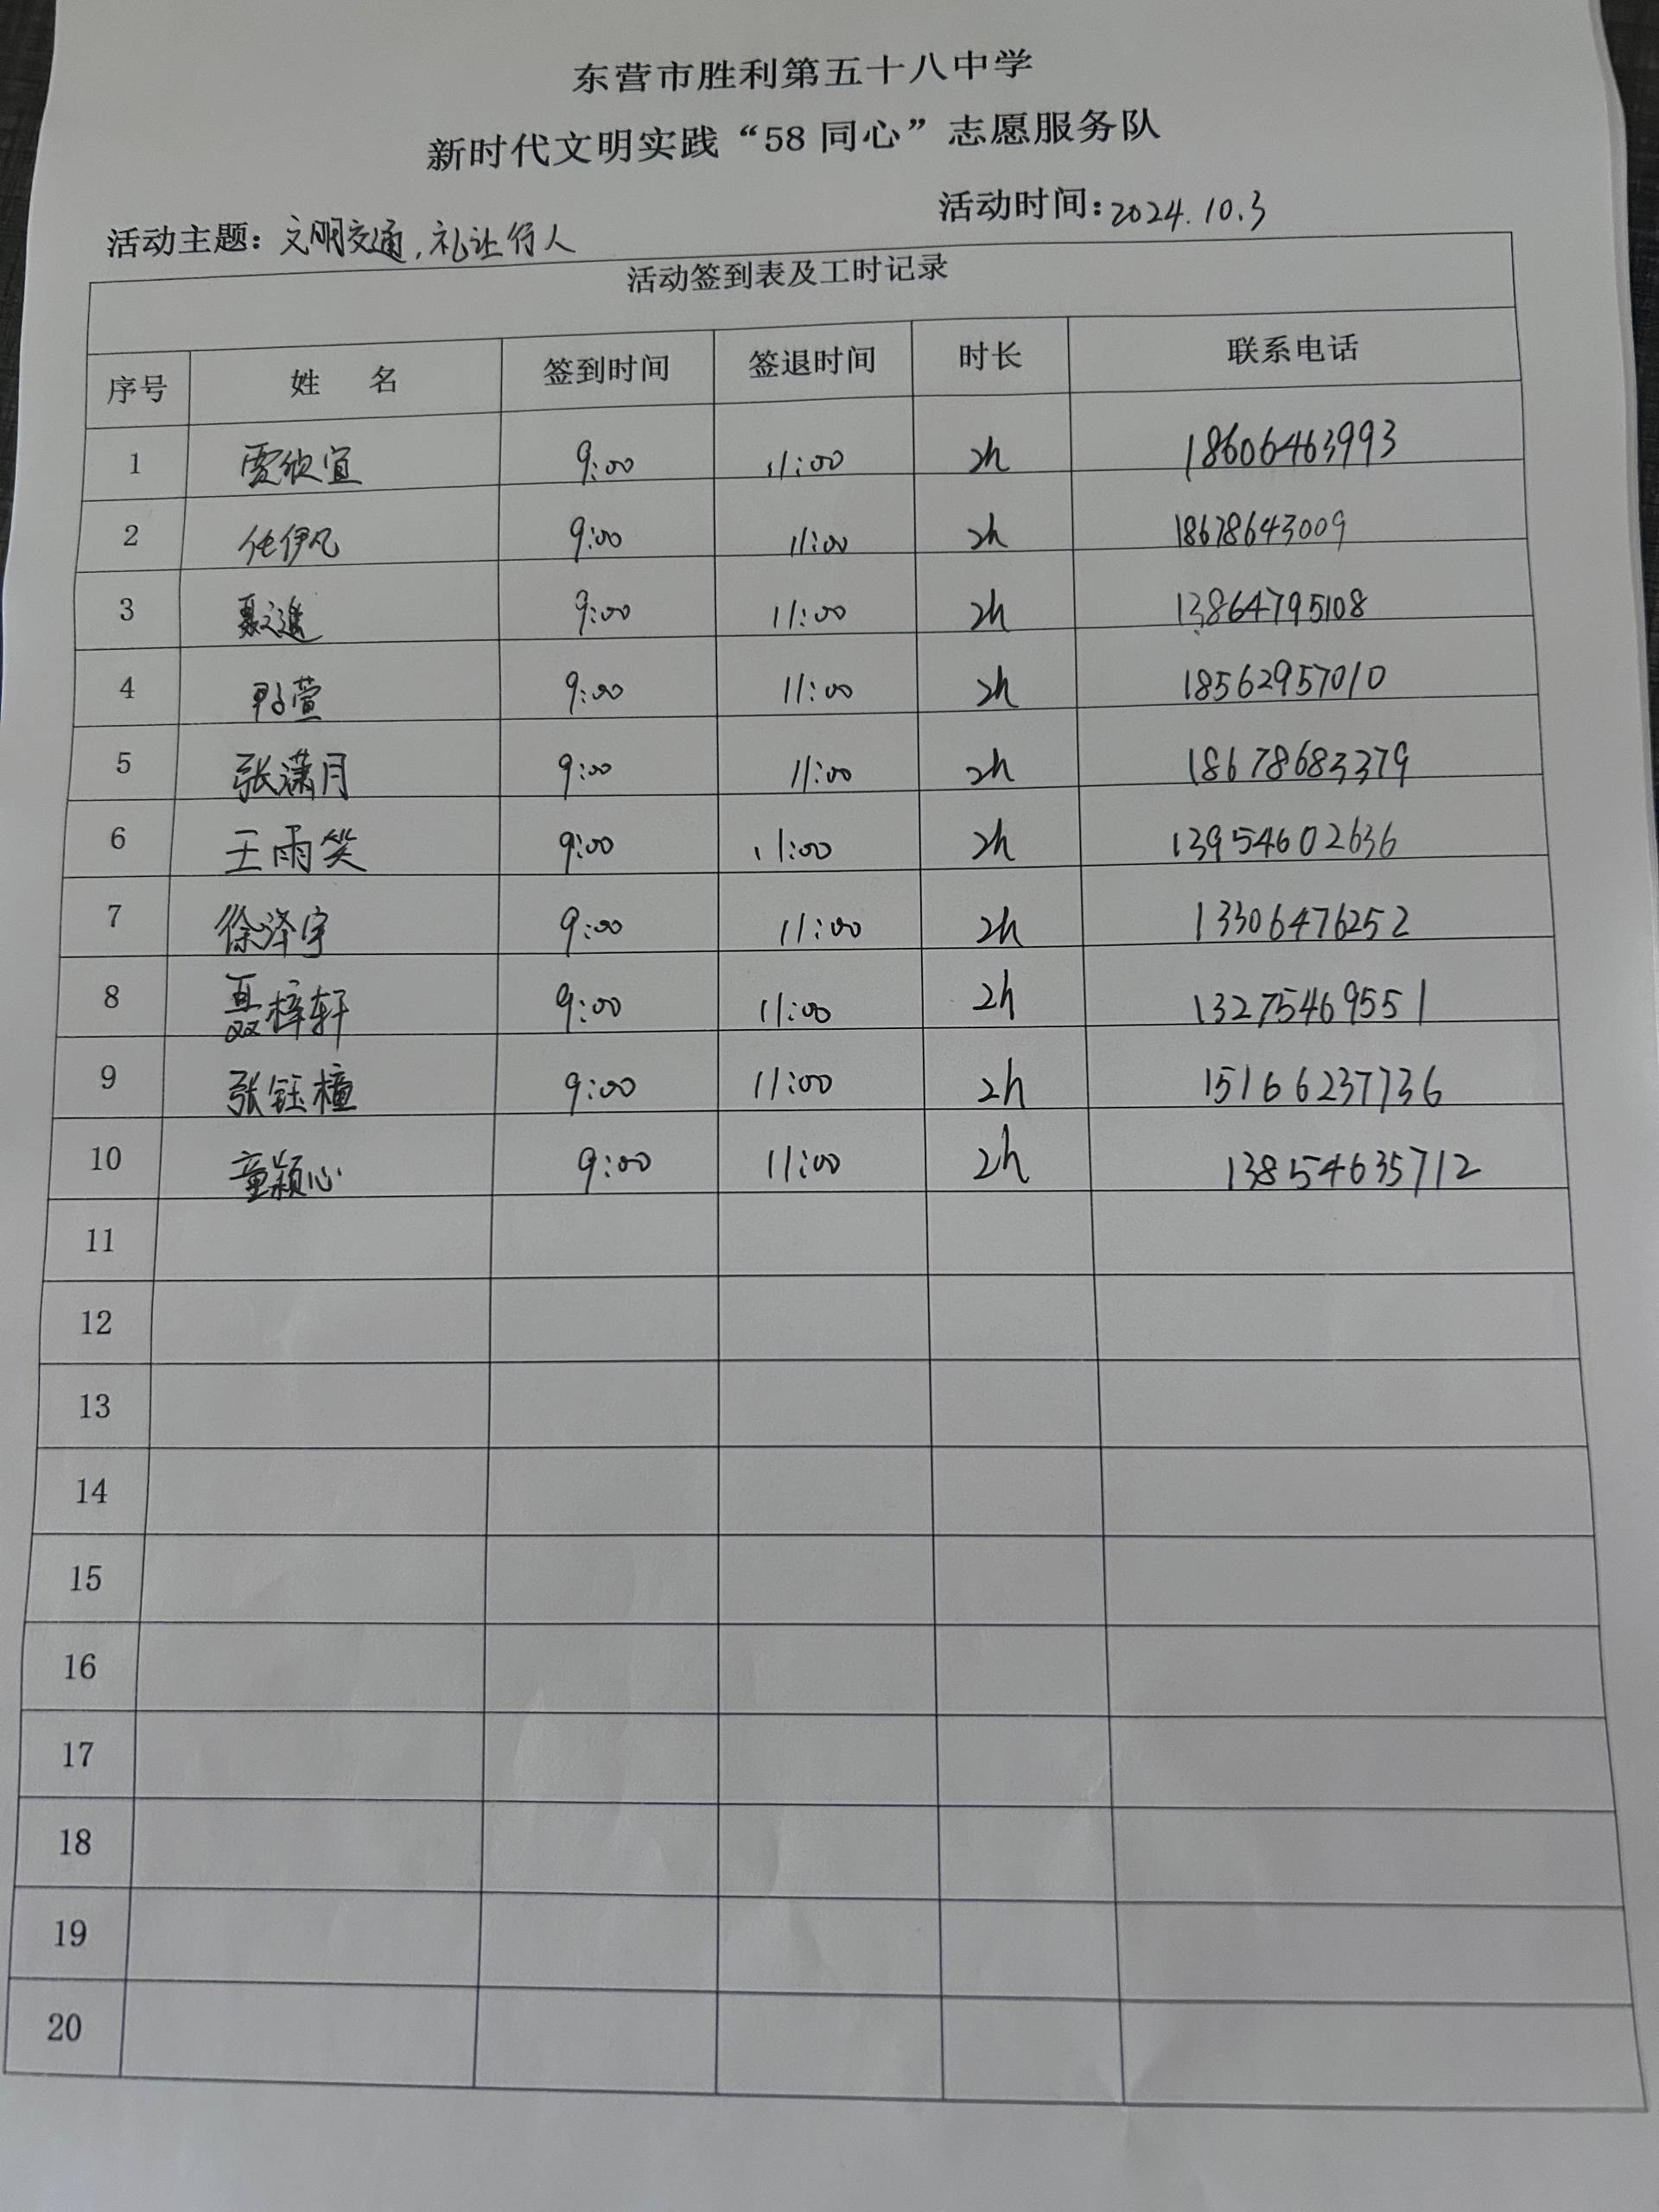 东营市胜利第五十八中学
新时代文明实践“58 同心”志愿服务队
活动时间：2024.10.3
活动主题：文明交通,礼让行人
活动签到表及工时记录
序号 姓 名 签到时间 签退时间 时长 联系电话
1 欣宜 9:00 11:00 2h 18606463993
2 任伊凡 9:00 11:00 2h 18678643009
3 9:00 11:00 2h 13864795108
4 萱 9:00 11:00 2h 18562957010
5 张潇月 9:00 11:00 2h 18678683379
6 王雨笑 9:00 11:00 2h 13954602636
7 徐泽宇 9:00 11:00 2h 13306476252
8 聂梓轩 9:00 11:00 2h 13275469551
9 张钰橦 9:00 11:00 2h 15166237736
10 童颖心 9:00 11:00 2h 13854635712
11
12
13
14
15
16
17
18
19
20